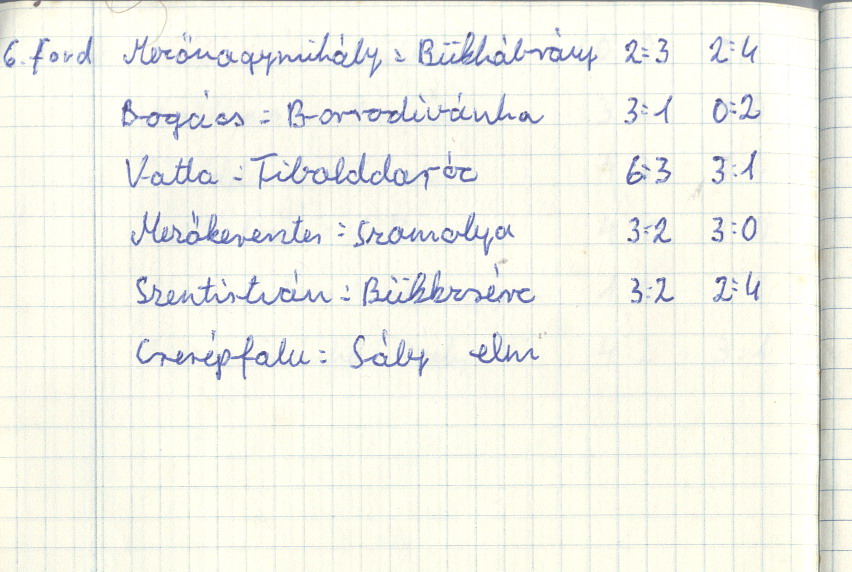 6. ford Mezőnagymihály = Bükkábrány 2=3 2=4
Bogács = Borsodivánka 3=1 0=2
Vatta = Tibolddaróc 6=3 3=1
Mezőkeresztes = Szomolya 3=2 3=0
Szentistván = Bükkzsérc 3=2 2=4
Cserépfalu = Sály elm